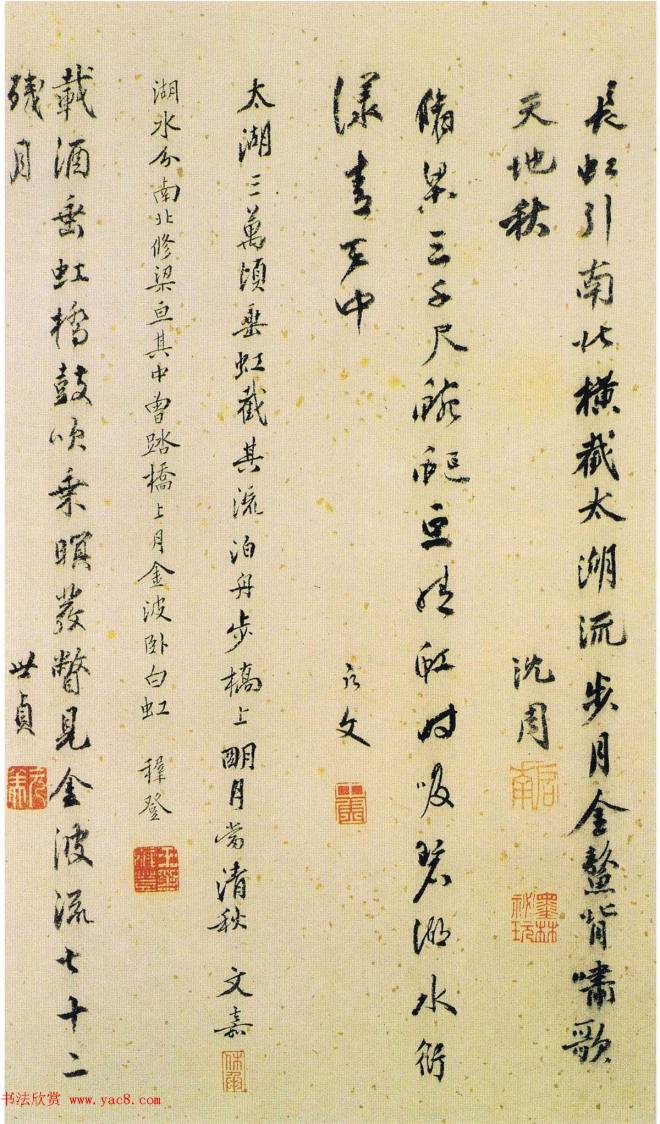 長虹引南北橫截太湖流步月金鰲背嘯歌
天地秋 沈周
启南
墨林祕玩
脩梁三千尺亘晴虹時吸碧湖水衍
漾青天中 文
太湖三萬頃垂虹截其流泊舟步橋上朙月當清秋 文嘉
休承
湖水分南北修梁亘其中曾踏橋上月金波卧白虹 穉登
王穉登
載酒垂虹橋鼓吹乘暝發瞥見金波流七十二
殘月 世貞
元美
书法欣赏 www.yac8.com